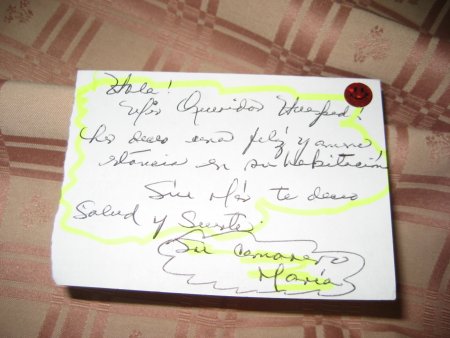 Hola!
Mis Queridos Huesped!
Les deseo una feliz y amena
estáncia en su habitación
Sin Más te deseo
Salud y Suerte.
Su camarera
María